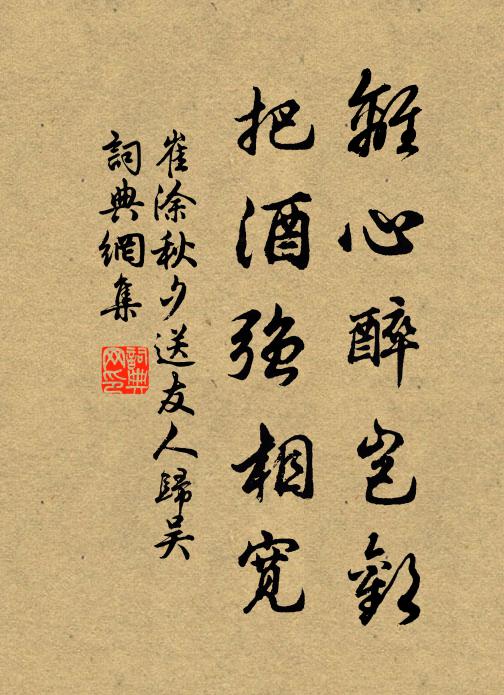 離心醉豈歡
把酒強相寬
崔涂秋夕送友人歸吴
詞典網集
詞典
网印